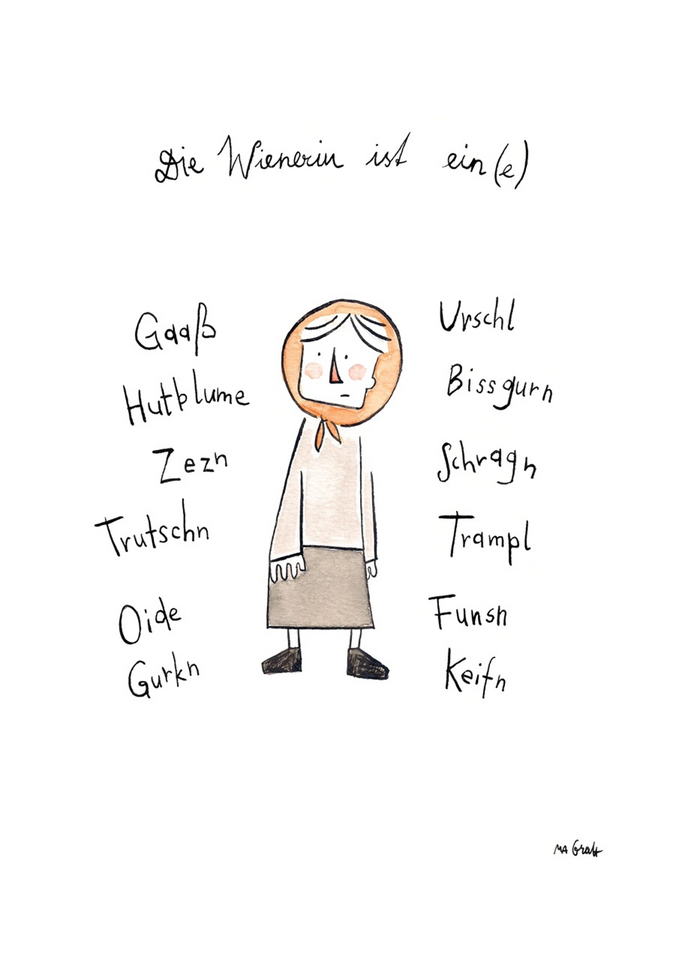 Die Wienerin ist ein(e)
Gaaß
Hutblume
Zezn
Trutschn
Oide
Gurkn
Urschl
Bissgurn
Schragn
Trampl
Funsn
Keifn
MA Gratt